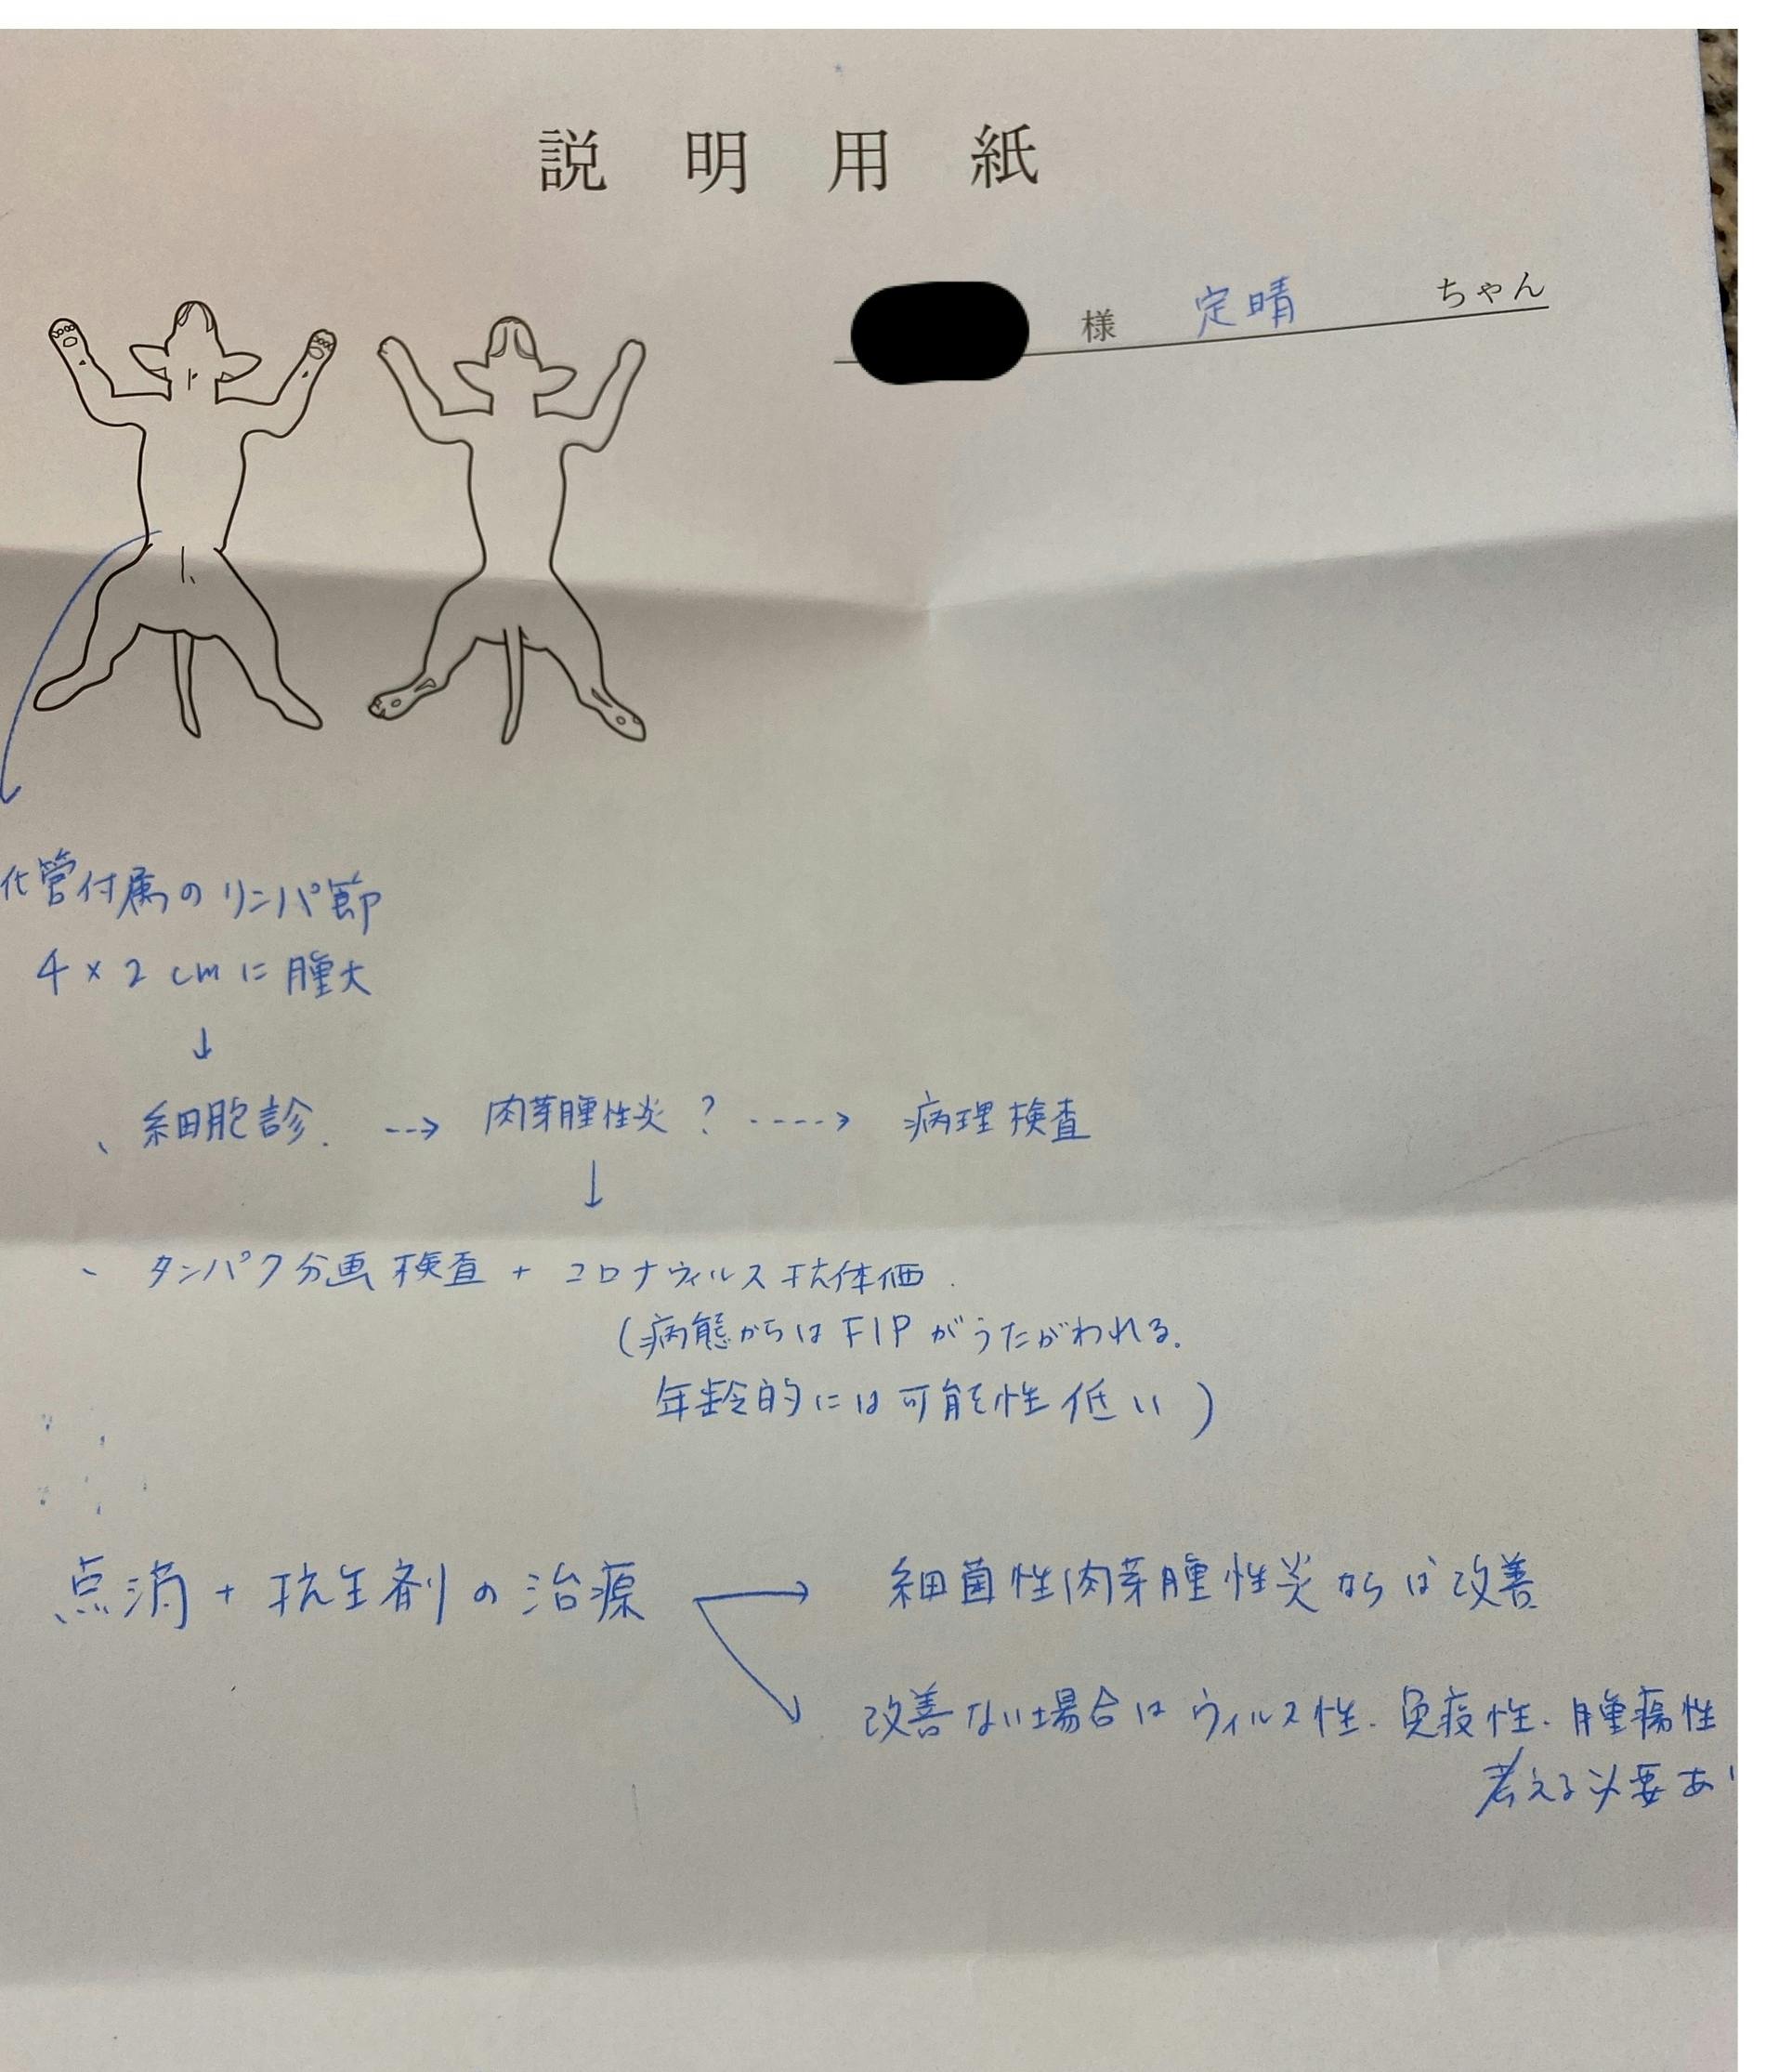 説明用紙
様 定晴 ちゃん
化管付属のリンパ節
4×2cmに腫大
↓
、細胞診. --→ 肉芽腫性炎? ----→ 病理検査
↓
、タンパク分画検査 + コロナウィルス抗体価.
(病態からはFIPがうたがわれる.
年齢的には可能性低い)
点滴 + 抗生剤の治療 → 細菌性肉芽腫性炎ならば改善
改善ない場合はウィルス性.免疫性.腫瘍性
考える必要あ